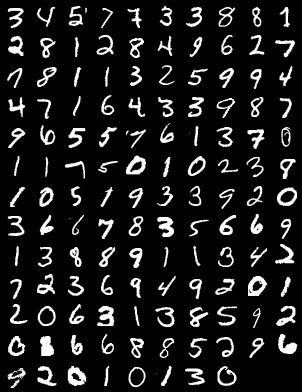 3 4 5 7 7 3 3 8 8 1
2 8 1 2 8 4 9 6 2 7
7 8 1 1 3 2 5 9 9 4
4 7 1 6 4 3 3 9 8 7
9 6 5 5 7 6 1 3 7 0
1 1 7 5 0 1 0 2 3 8
1 0 5 1 9 3 3 9 2 0
3 6 6 7 8 3 5 6 6 9
1 3 8 8 9 1 1 3 4 2
7 2 3 6 9 4 9 2 0 1
2 0 6 3 1 3 8 5 9 2
0 8 6 6 8 8 5 2 9 6
9 2 0 1 0 1 3 0